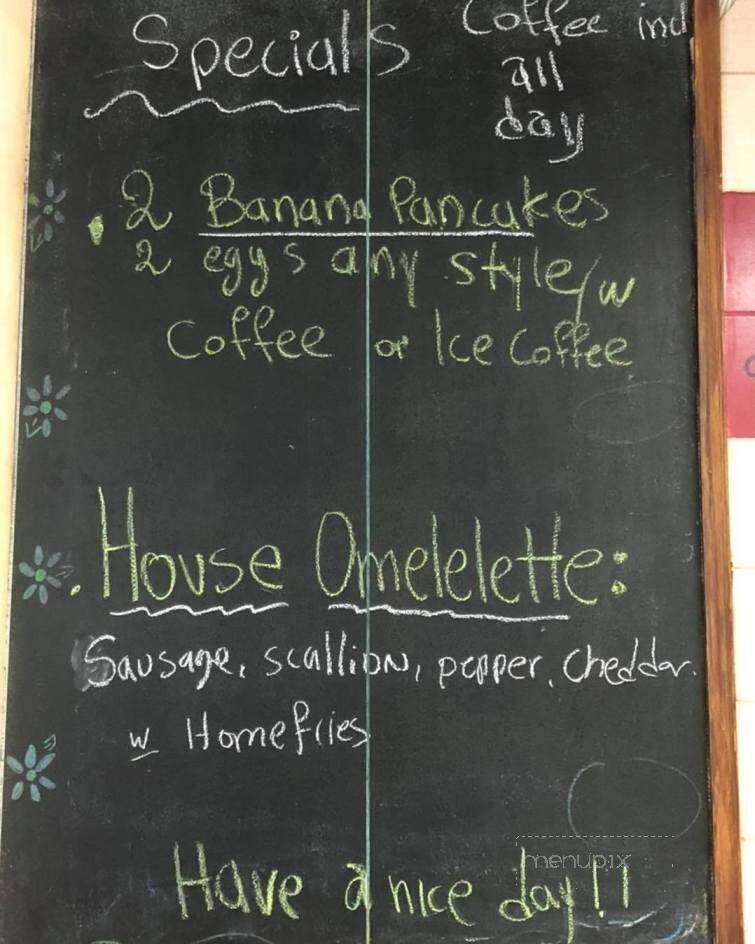 Specials
Coffee incl
all
day
2 Banana Pancakes
2 eggs any style/w
Coffee or Ice Coffee
House Omelelette:
Sausage, scallion, pepper, Cheddar.
w Homefries
menupix
Have a nice day!!